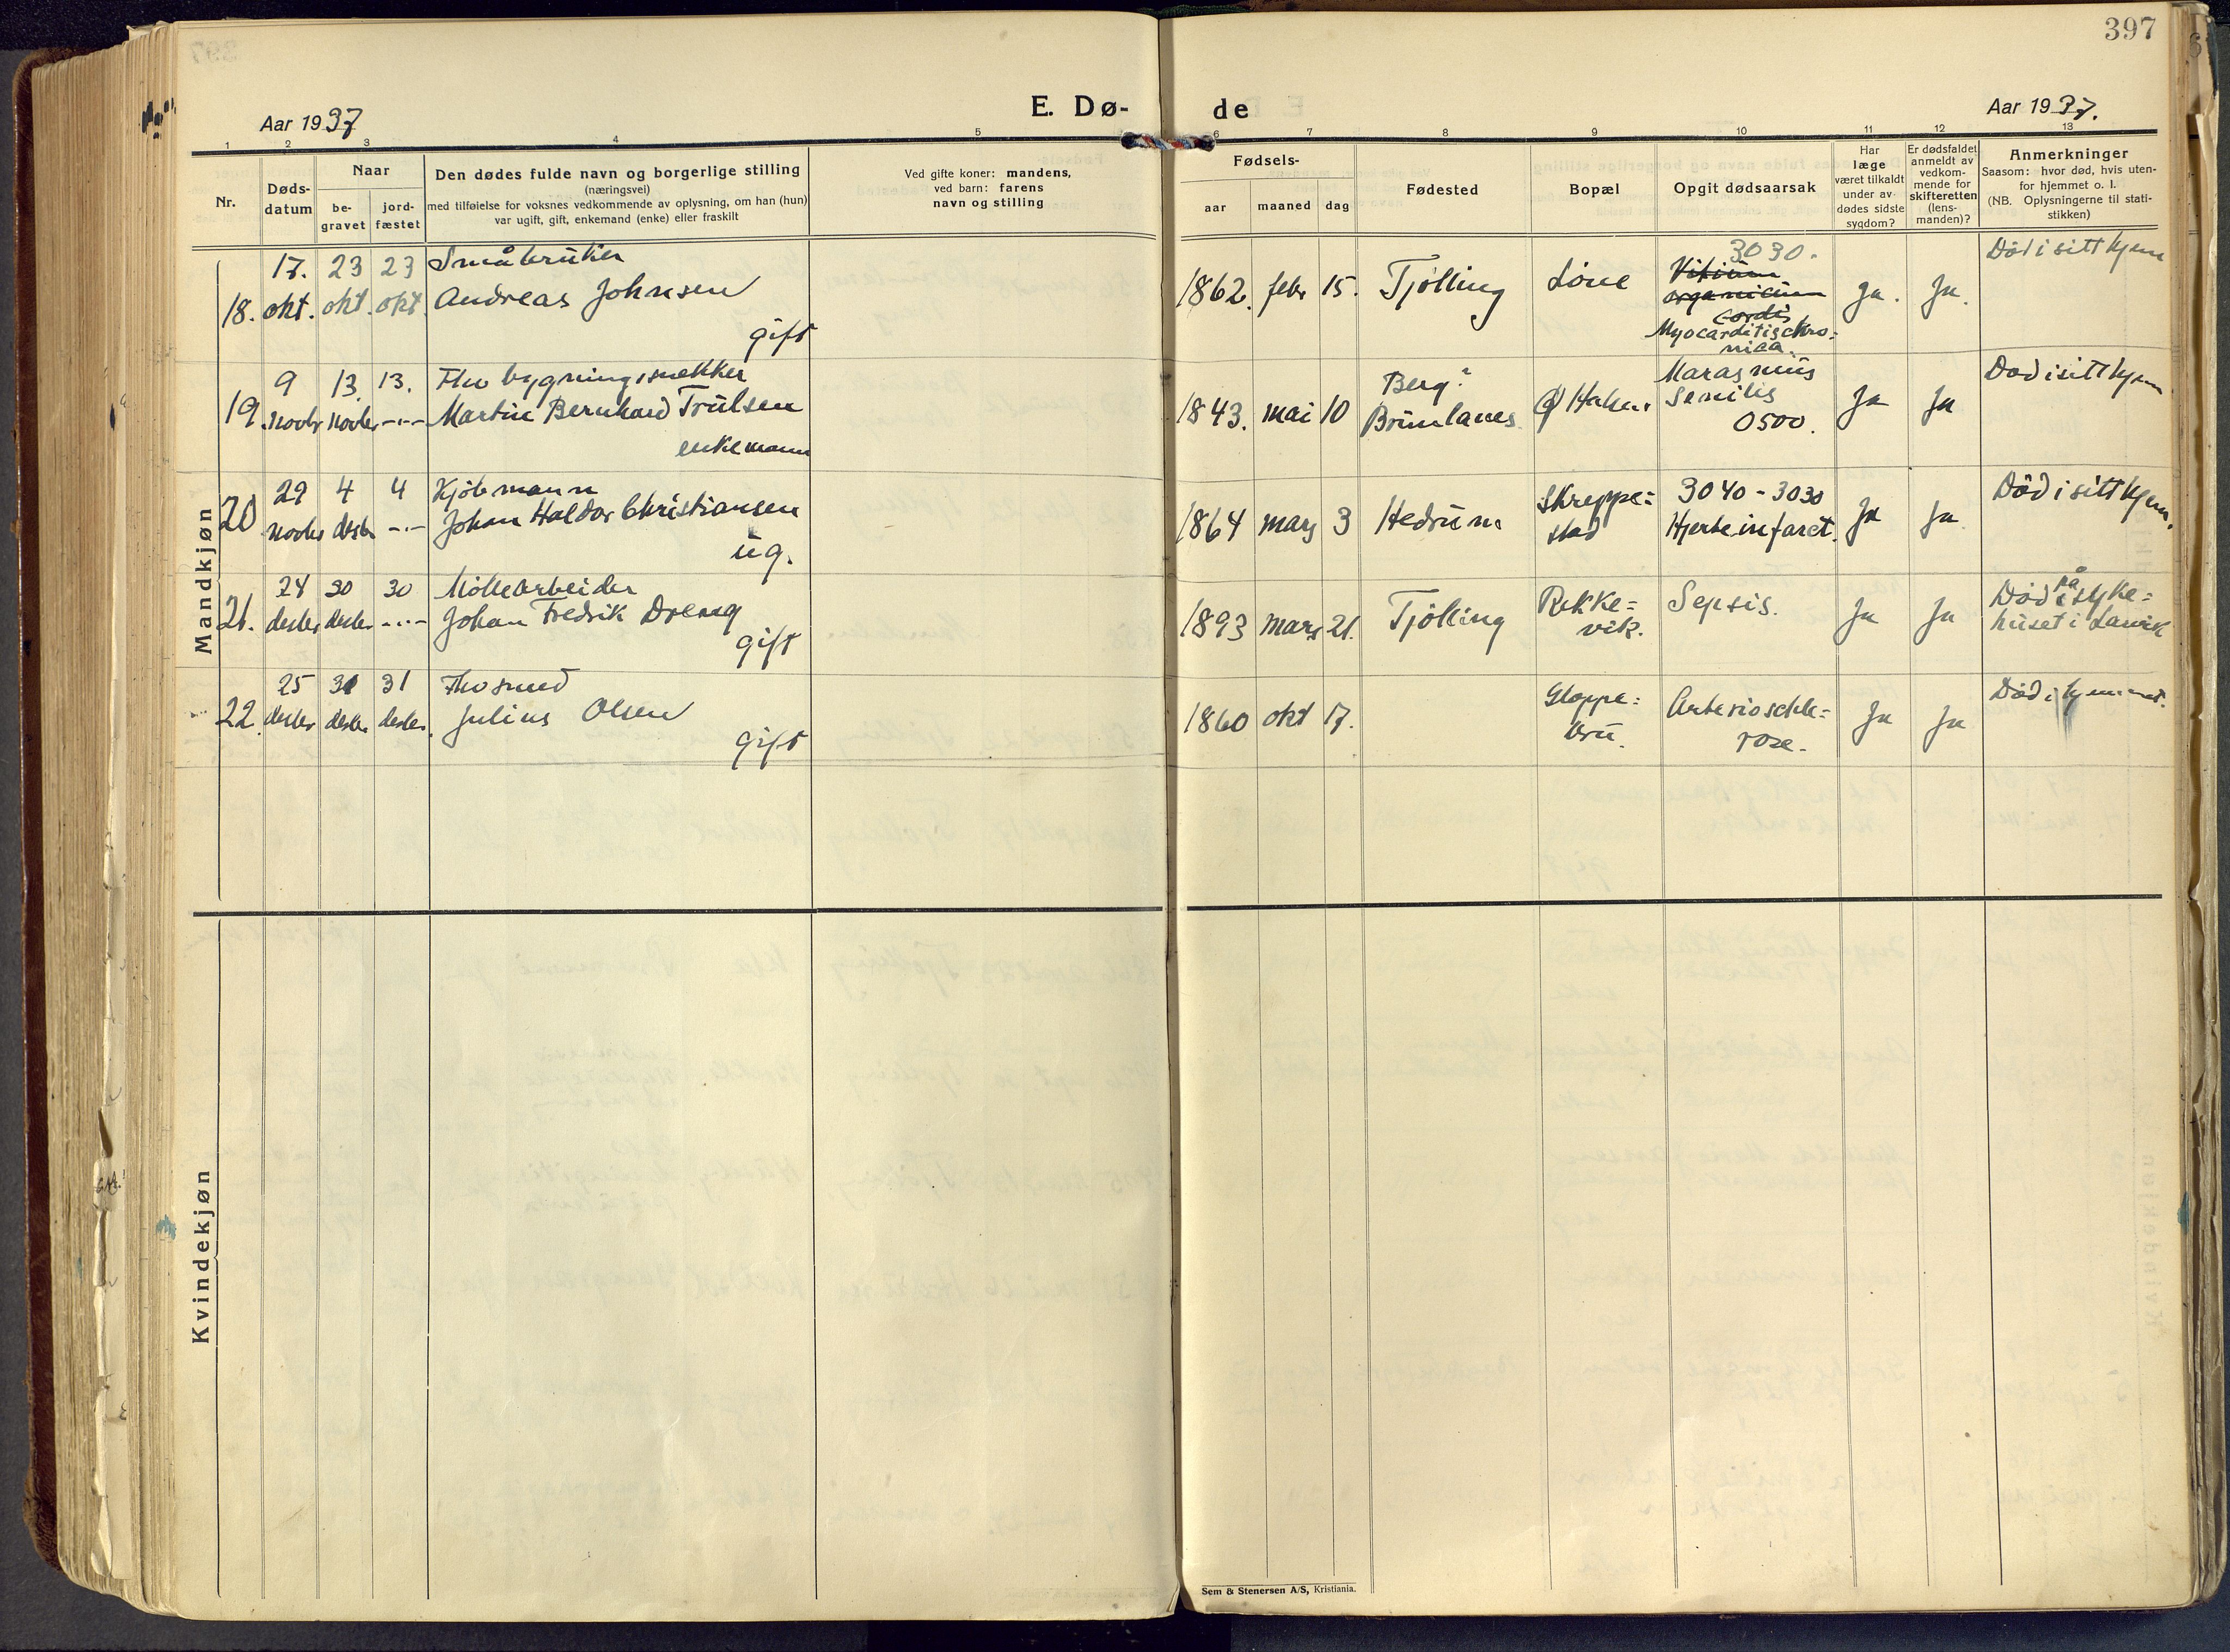 397
Aar 1937
E. Dø-
de
Aar 1937.
1 2 3 4 5 6 7 8 9 10 11 12 13
Nr.
Døds-
datum
Naar
be-
gravet
jord-
fæstet
Den dødes fulde navn og borgerlige stilling
(næringsvei)
med tilføielse for voksnes vedkommende av oplysning, om han (hun)
var ugift, gift, enkemand (enke) eller fraskilt
Ved gifte koner: mandens,
ved barn: farens
navn og stilling
Fødsels-
aar
maaned
dag
Fødested
Bopæl
Opgit dødsaarsak
Har
læge
været tilkaldt
under av-
dødes sidste
sygdom?
Er dødsfaldet
anmeldt av
vedkom-
mende for
skifteretten
(lens-
manden)?
Anmerkninger
Saasom: hvor død, hvis uten-
for hjemmet o. l.
(NB. Oplysningerne til stati-
stikken)
Mandkjøn
18.
17.
okt.
23
okt.
23
okt.
Småbruker
Andreas Johnsen
gift
1862.
febr
15.
Tjølling
Løve
3030.
Vitium
organicum
cordis
Myocarditis chro-
nica.
ja.
Ja.
Død i sitt hjem
19.
9
novbr
13.
novbr
13.
-"-
Fhv bygningssnekker
Martin Bernhard Trulsen
enkemann
1843.
mai
10
Berg?
Brunlanes.
Marasmus
senilis
0500.
Ja
Ja
Død i sitt hjem
20
29
novbr
4
desbr
4
-"-
Kjøbmann
Johan Haldor Christiansen
ug.
1864
mars
3
Hedrum
Skreppe=
stad
3040 - 3030
Hjerteinfarct.
Ja
Ja
Død i sitt hjem.
21.
24
desbr
30
desbr
30
-"-
Møllearbeider
Johan Fredrik Dreng
gift
1893
mars
21.
Tjølling
Rekke=
vik.
Sepsis.
Ja
Ja
på
Død i syke=
huset i Larvik
22.
25
desbr
31
desbr
31
desbr.
Fhv smed
Julius Olsen
gift
1860
okt
17.
Gloppe=
bru.
Arterioschle=
rose.
Ja
Ja
Død i hjemmet.
Kvindekjøn
Sem & Stenersen A/S, Kristiania.